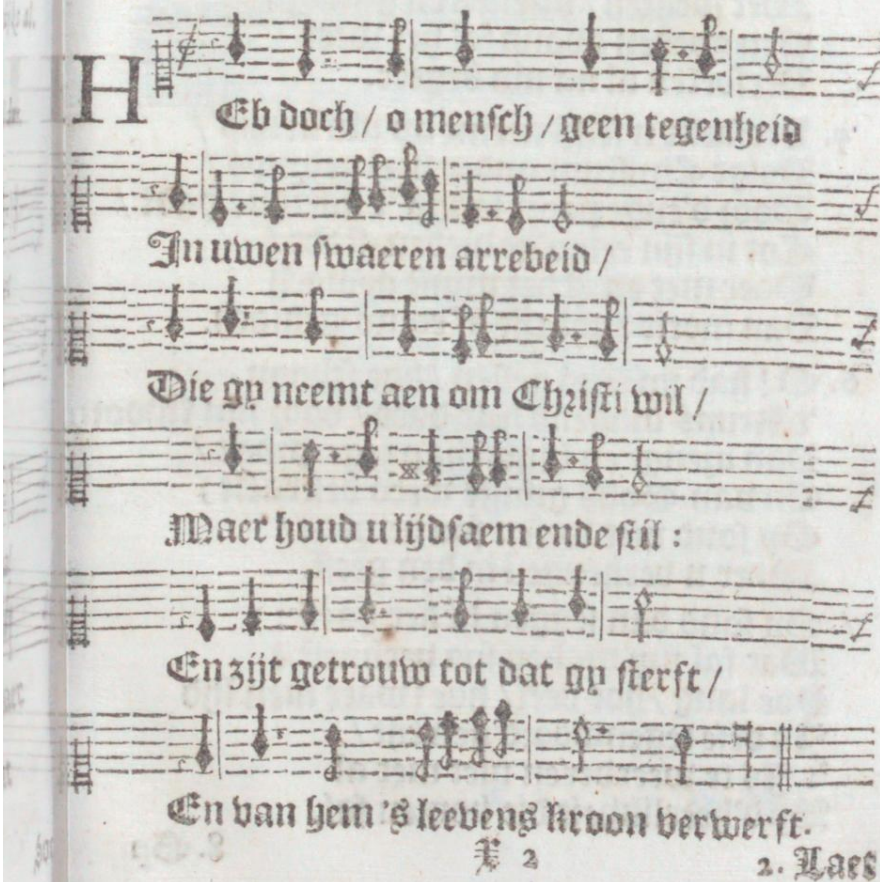 HEb doch / o mensch / geen tegenheid
In uwen swaeren arrebeid /
Die gy neemt aen om Christi wil /
Maer houd u lijdsaem ende stil :
En zijt getrouw tot dat gy sterft /
En van hem 's leevens kroon verwerft.
X 2
2. Laet